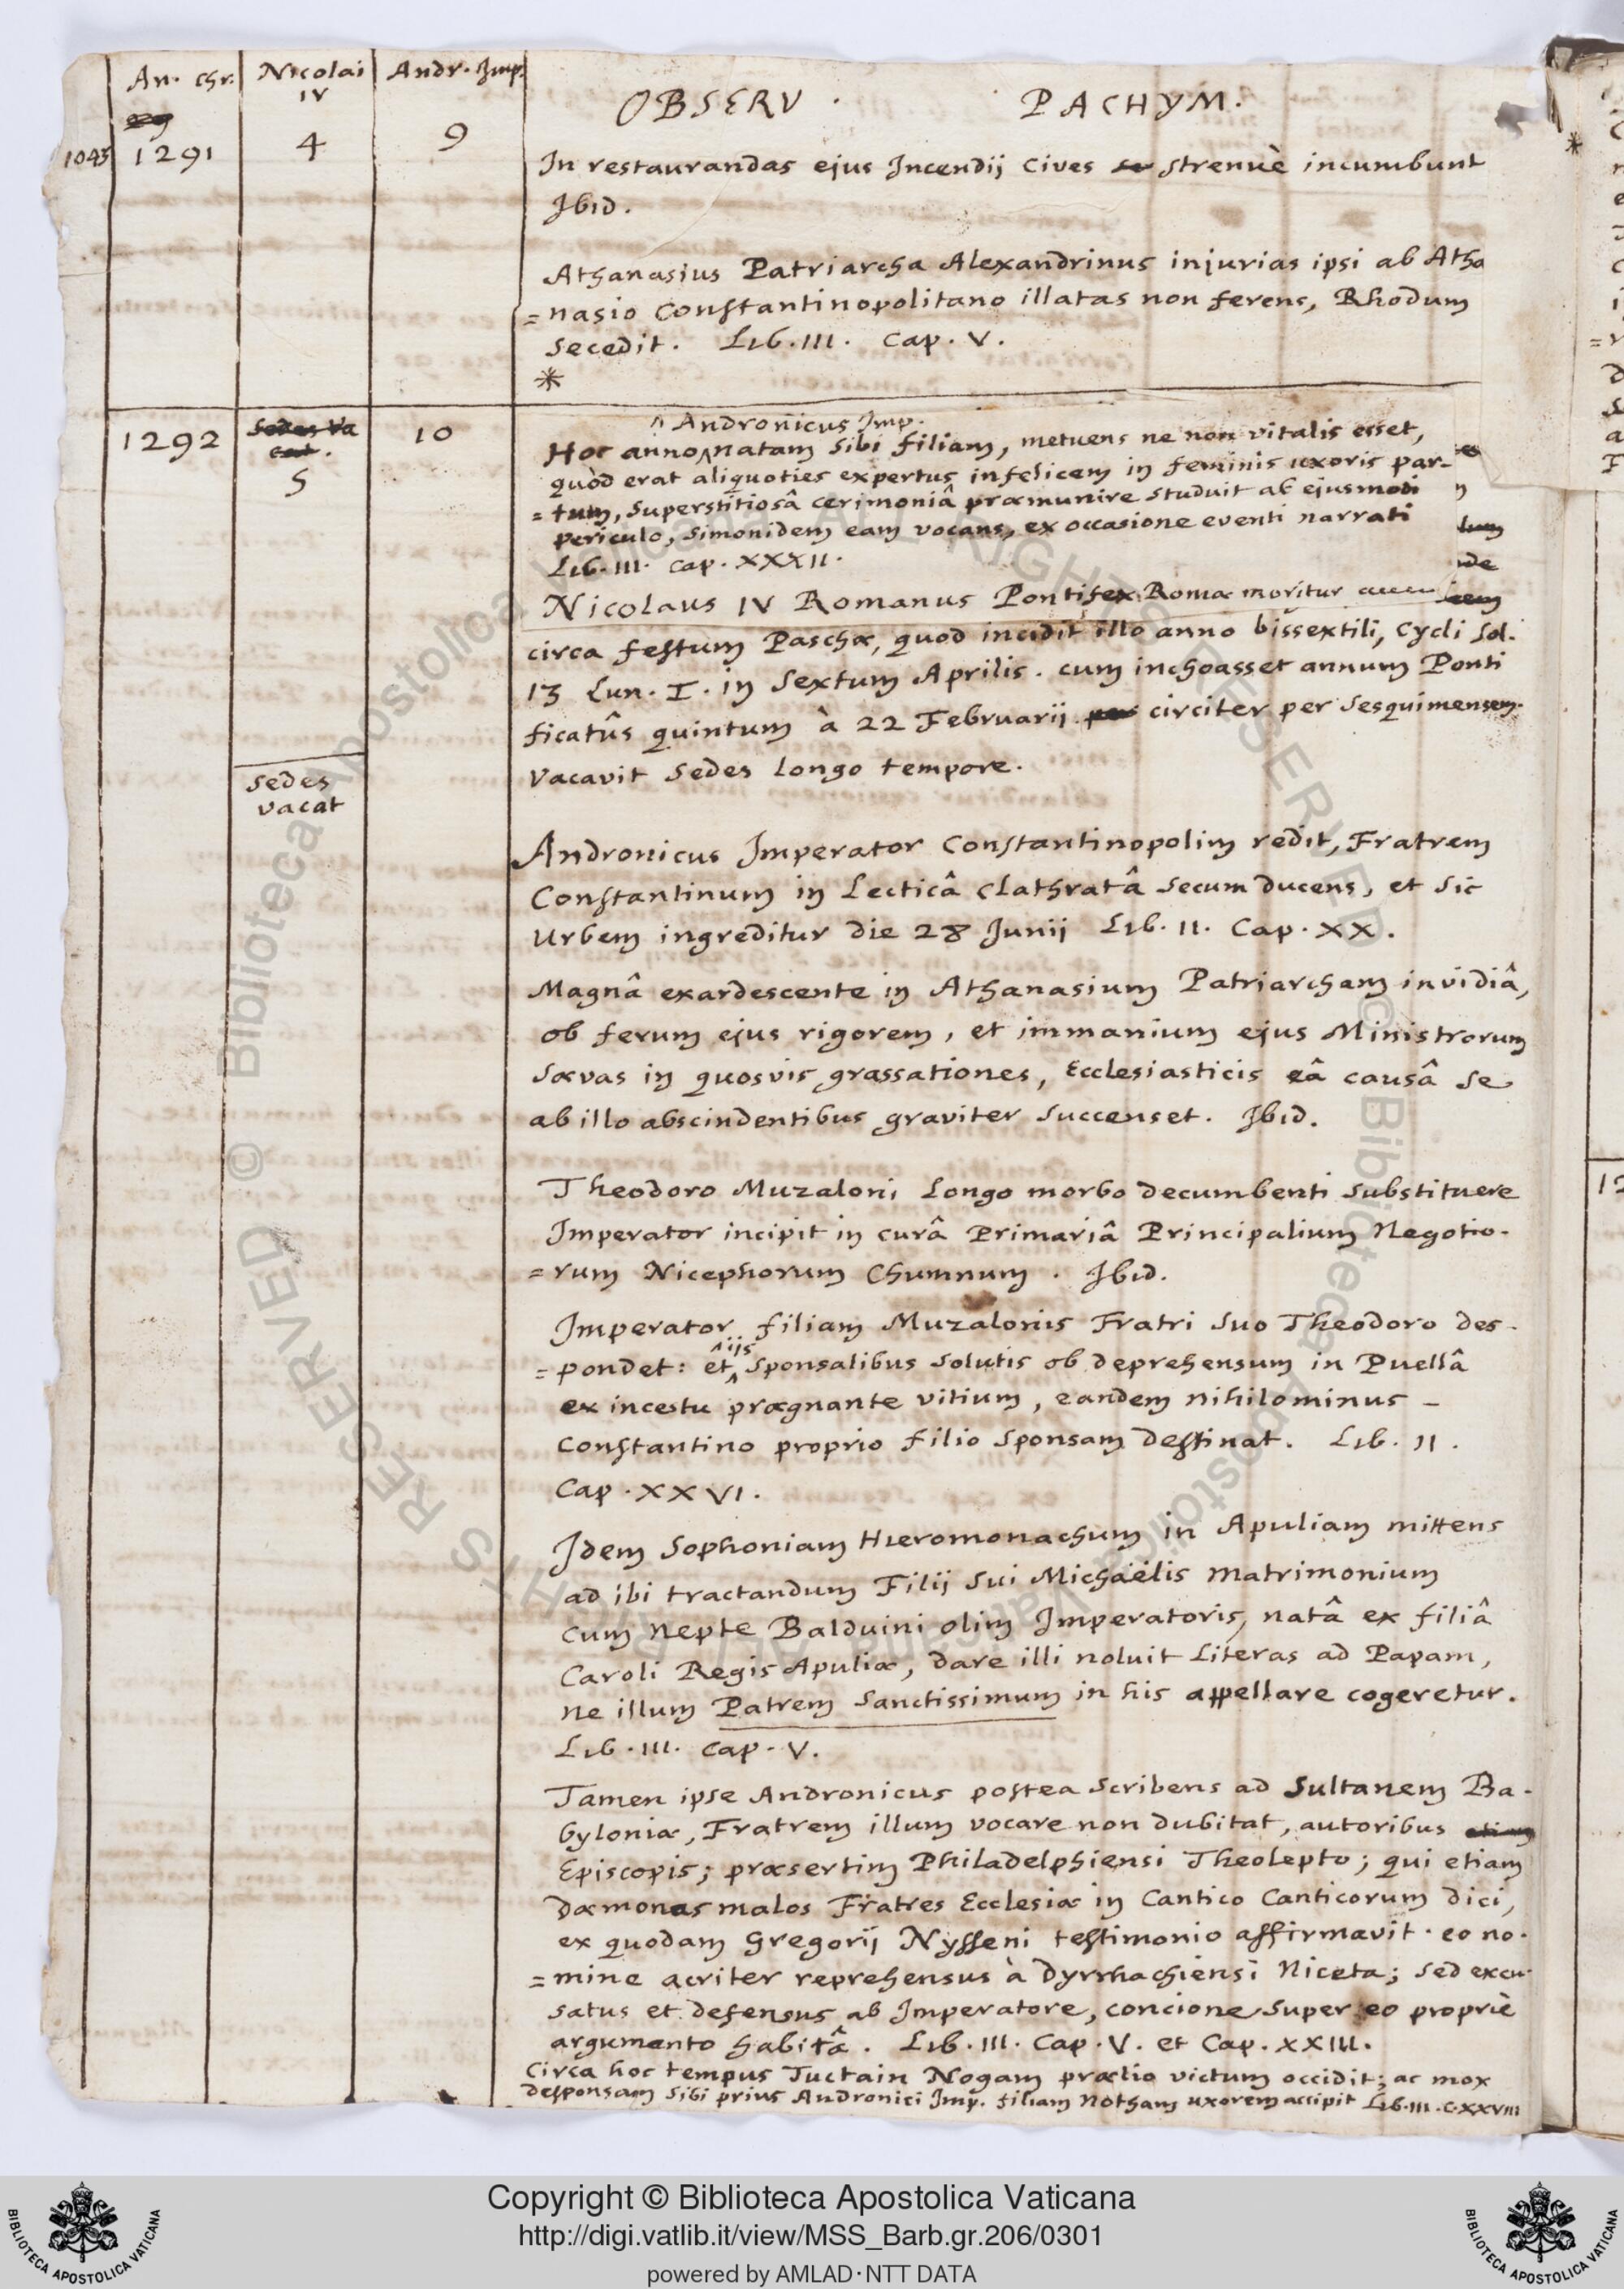 An. Chr.
Nicolai
IV
Andr. Imp.
OBSERV. PACHYM.
1043
1291
4
9
In restaurandas ejus Incendij Cives strenuè incumbunt
Ibid.
Athanasius Patriarcha Alexandrinus injurias ipsi ab Atha
= nasio Constantinopolitano illatas non ferens, Rhodum
secedit. Lib. III. Cap. V.
*
1292
Sedes Va
cat.
5
10
^ Andronicus Imp.
Hoc anno ^ natam sibi filiam, metuens ne non vitalis esset,
quòd erat aliquoties expertus infelicem in feminis uxoris par-
= tum, superstitiosâ cerimoniâ præmunire studuit ab ejusmodi
periculo, Simonidem eam vocans, ex occasione eventi narrati
Lib. III. Cap. XXXII.
Nicolaus IV Romanus Pontifex Romæ moritur
circa festum Paschæ, quod incidit illo anno bissextili, Cycli Sol.
13 Lun. I. in Sextum Aprilis. cum inchoasset annum Ponti
ficatûs quintum à 22 Februarij circiter per sesquimensem.
Vacavit Sedes longo tempore.
Sedes
vacat
Andronicus Imperator Constantinopolim redit, Fratrem
Constantinum in Lecticâ clathratâ secum ducens, et sic
Urbem ingreditur die 28 Junii Lib. II. Cap. XX.
Magnâ exardescente in Athanasium Patriarcham invidiâ,
ob ferum ejus rigorem, et immanium ejus Ministrorum
sævas in quosvis grassationes, Ecclesiasticis eâ causâ se
ab illo abscindentibus graviter succenset. Ibid.
Theodoro Muzaloni longo morbo decumbenti substituere
Imperator incipit in curâ Primariâ Principalium Negotio-
= rum Nicephorum Chumnum. Ibid.
Imperator filiam Muzalonis Fratri suo Theodoro des-
= pondet: et ^ îjs sponsalibus solutis ob deprehensum in Puellâ
ex incestu prægnante vitium, eandem nihilominus -
Constantino proprio filio sponsam destinat. Lib. II.
Cap. XXVI.
Idem Sophoniam Hieromonachum in Apuliam mittens
ad ibi tractandum Filij sui Michaëlis matrimonium
cum Nepte Balduini olim Imperatoris, natâ ex filiâ
Caroli Regis Apuliæ, dare illi noluit Literas ad Papam,
ne illum Patrem Sanctissimum in his appellare cogeretur.
Lib. III. Cap. V.
Tamen ipse Andronicus postea scribens ad Sultanem Ba-
byloniæ, Fratrem illum vocare non dubitat, autoribus etiam
Episcopis; præsertim Philadelphiensi Theolepto; qui etiam
Dæmonas malos Fratres Ecclesiæ in Cantico Canticorum dici,
ex quodam Gregorij Nysseni testimonio affirmavit. eo no-
= mine acriter reprehensus à Dyrrhachiensi Niceta; sed excu-
satus et defensus ab Imperatore, concione super eo propriè
argumento habitâ. Lib. III. Cap. V. et Cap. XXIII.
Circa hoc tempus Tuctain Nogam prælio victum occidit; ac mox
desponsam sibi prius Andronici Imp. filiam Notham uxorem accipit Lib. III. C. XXVII
Copyright © Biblioteca Apostolica Vaticana
http://digi.vatlib.it/view/MSS_Barb.gr.206/0301
powered by AMLAD·NTT DATA
BIBLIOTECA APOSTOLICA VATICANA
BIBLIOTECA APOSTOLICA VATICANA